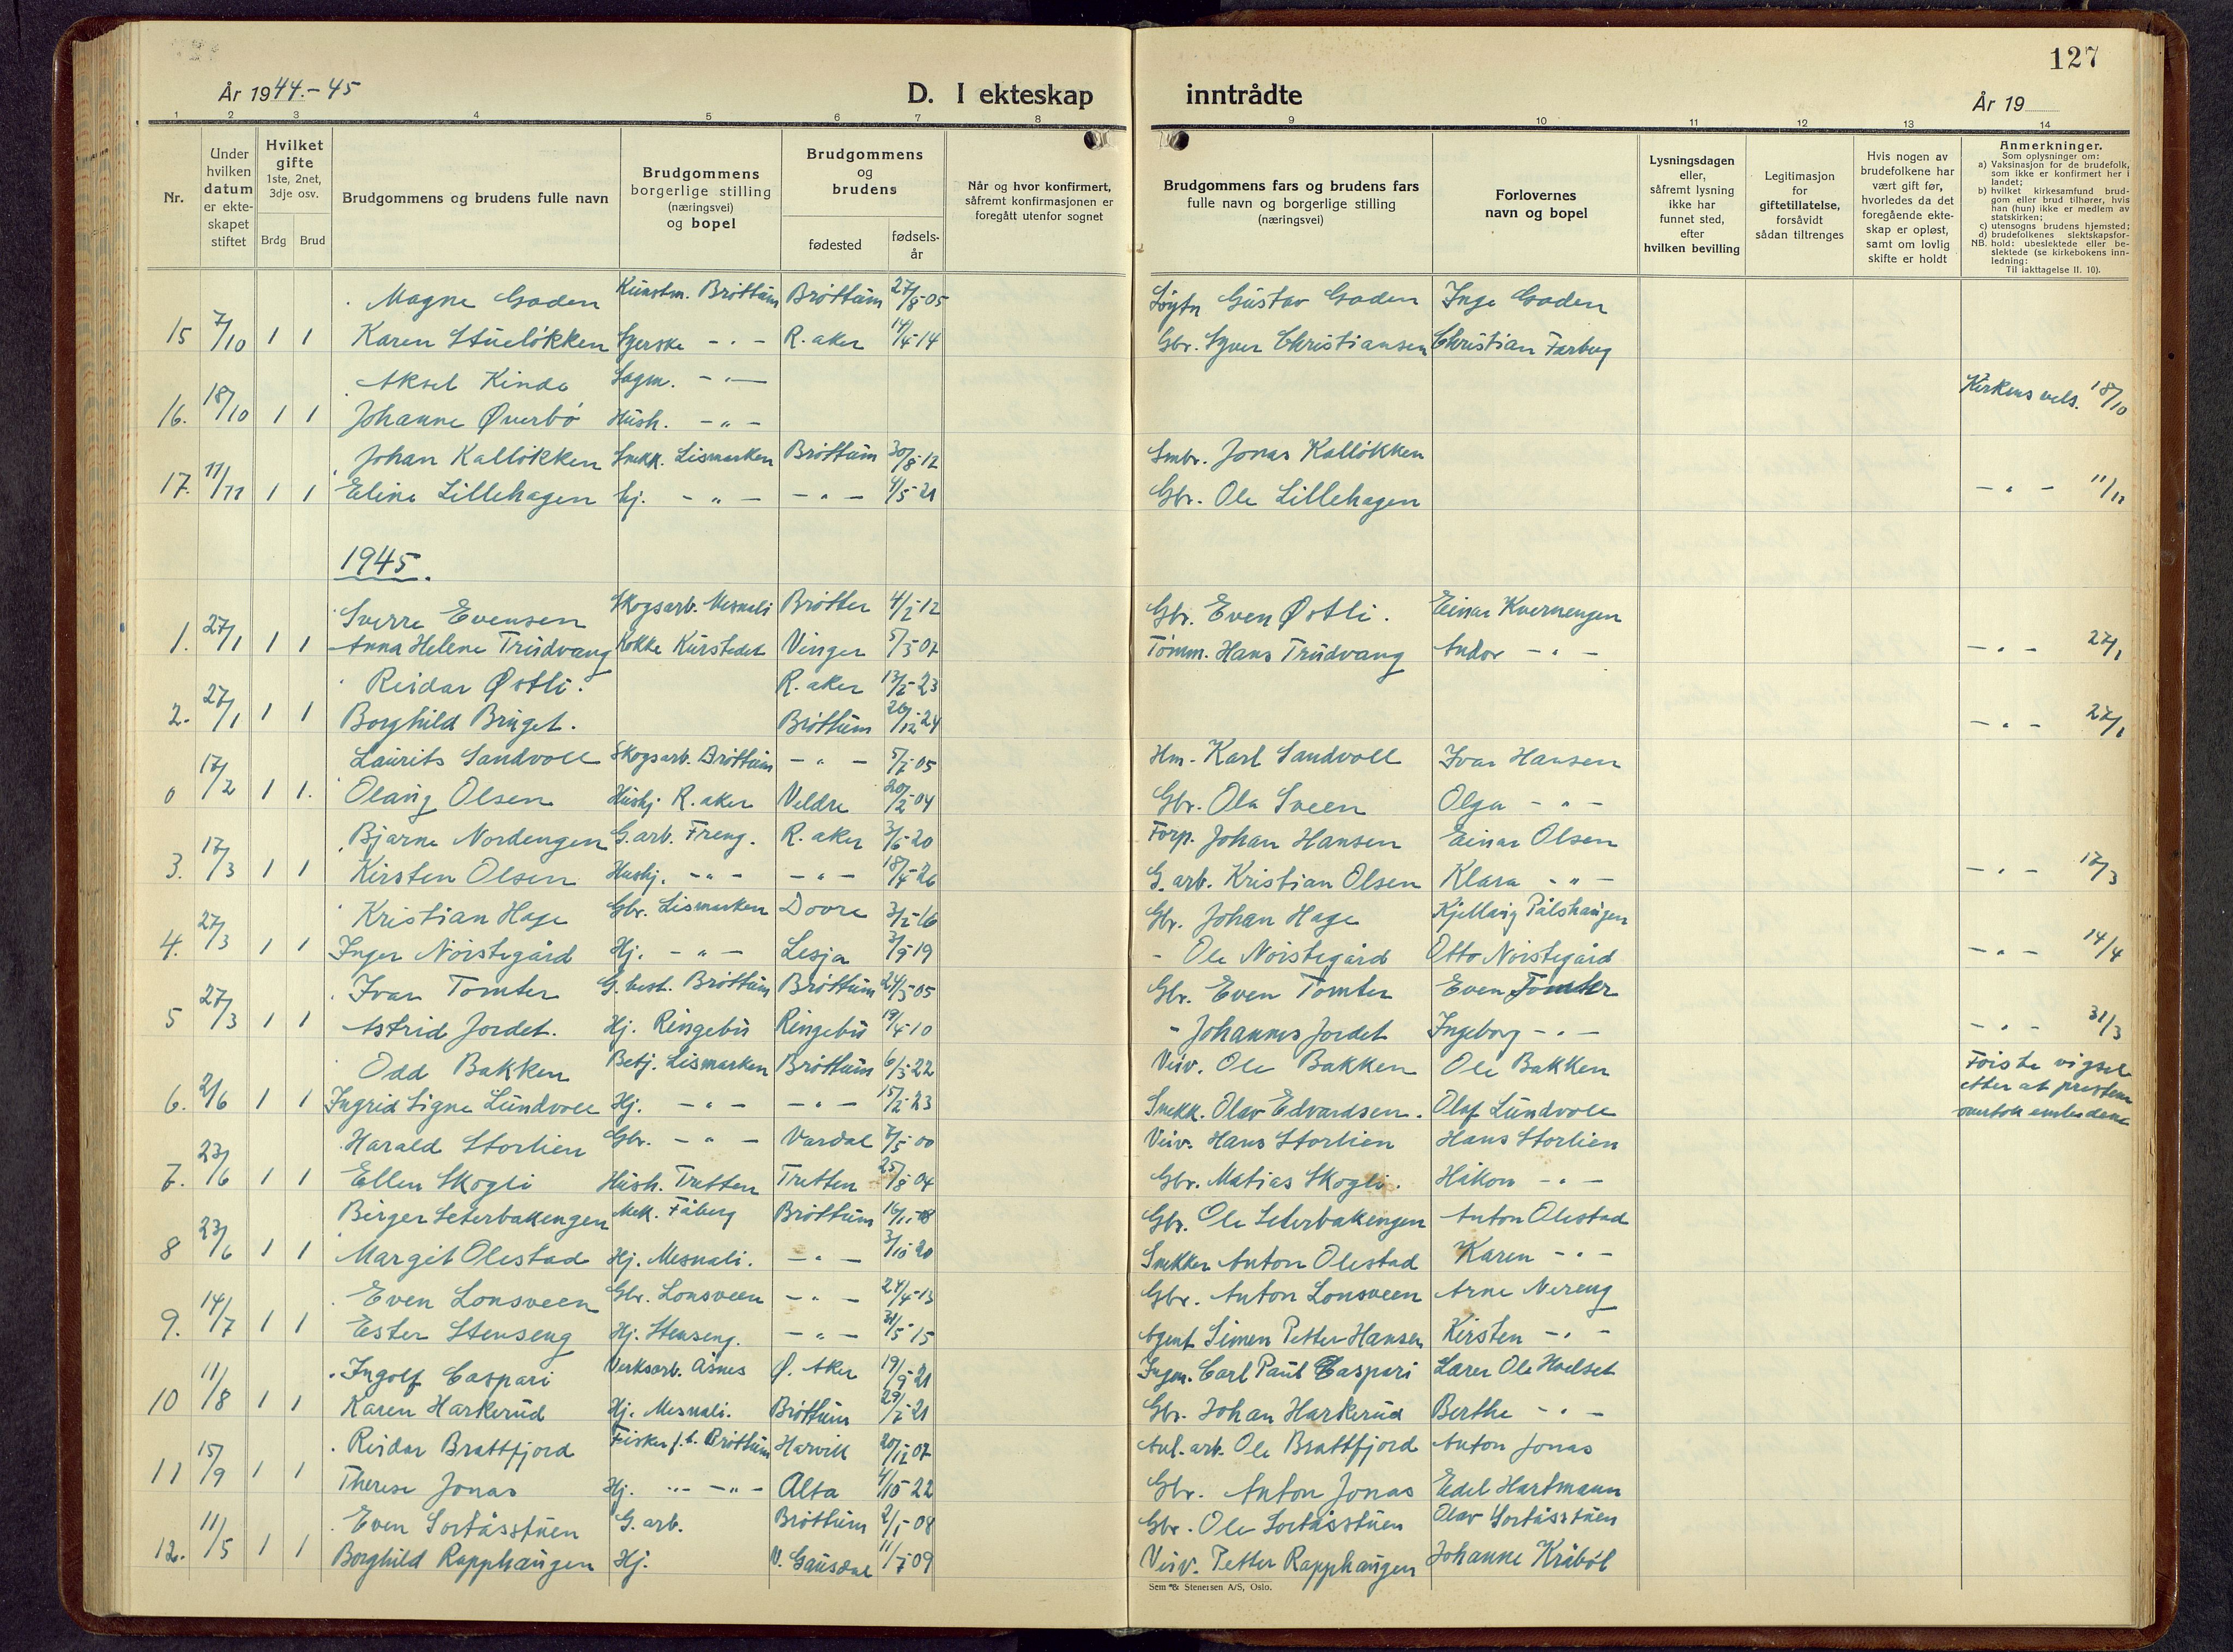 127
År 1944.-45
D. I ekteskap inntrådte
År 19
1 2 3 4 5 6 7 8 9 10 11 12 13 14
Nr.
Under hvilken datum er ekteskapet stiftet
Hvilket gifte 1ste, 2net, 3dje osv.
Brdg Brud
Brudgommens og brudens fulle navn
Brudgommens borgerlige stilling (næringsvei) og bopel
Brudgommens og brudens
fødested
fødselsår
Når og hvor konfirmert, såfremt konfirmasjonen er foregått utenfor sognet
Brudgommens fars og brudens fars fulle navn og borgerlige stilling (næringsvei)
Forlovernes navn og bopel
Lysningsdagen eller, såfremt lysning ikke har funnet sted, efter hvilken bevilling
Legitimasjon for giftetillatelse, forsåvidt sådan tiltrenges
Hvis nogen av brudefolkene har vært gift før, hvorledes da det foregående ekteskap er opløst, samt om lovlig skifte er holdt
Anmerkninger.
Som oplysninger om:
a) Vaksinasjon for de brudefolk, som ikke er konfirmert her i landet;
b) hvilket kirkesamfund brudgom eller brud tilhører, hvis han (hun) ikke er medlem av statskirken;
c) utensogns brudens hjemsted;
d) brudefolkenes slektskapsforhold: ubeslektede eller beslektede (se kirkebokens innledning:
NB. Til iakttagelse II. 10).
Magne Goden Kunstm. Brøttum Brøttum 27/8-05 Gustav Goden Inge Goden
15 7/10 1 1 Karen Stueløkken Syerske - " - R. aker 14/4-14 Gbr. Syver Christiansen Christian Farbug
Aksel Kinde Sagm. - " -
16. 18/10 1 1 Johanne Øverbø Hush. - " - Kirkens vels. 18/10
Johan Kalløkken Snekk. Lismarken Brøttum 30/8-12 Smbr. Jonas Kalløkken
17. 11/11 1 1 Eline Lillehagen hj. - " - - " - 4/5-21 Gbr. Ole Lillehagen - " - 11/11
1945.
Sverre Evensen Skogsarb. Mesnali 4/2-12 Gbr. Even Østli. Einar Kvernengen
1. 27/1 1 1 Anna Helene Trudvang Kokke Kurstedet Vinger 5/3-07 Tømm. Hans Trudvang Andor - " - - " - 27/1
Reidar Østli. R. aker 13/2-23
2. 27/1 1 1 Borghild Bruget. Brøttum 26/12-24 - " - 27/1
Laurits Sandvoll Skogsarb. Brøttum - " - 5/2-05 Hm. Karl Sandvoll Ivar Hansen
0 17/2 1 1. Olaug Olsen Hushj. R. aker Veldre 20/2-04 Gbr. Ola Sveen Olga - " -
Bjarne Nordengen G. arb. Freng. R. aker 3/6-20 Forp. Johan Hansen Einar Olsen
3. 17/3 1 1 Kirsten Olsen Hushj. - " - - " - 18/4-26 G. arb. Kristian Olsen Klara - " - - " - 17/3
Kristian Hage Gbr. Lismarken Dovre 3/2-16 Gbr. Johan Hage Kjellaug Pålshaugen
4. 27/3 1 1 Inger Nørstegård Hj. - " - Lesja 3/9-19 - Ole Nørstegård Otto Nørstegård - " - 14/4
Ivar Tomter G. best. Brøttum Brøttum 24/3-05 Gbr. Even Tomter Even Tomter
5 27/3 1 1 Astrid Jordet. Hj. Ringebu Ringebu 19/4-10 - Johannes Jordet Ingeborg - " - - " - 31/3
Odd Bakken Betj. Lismarken Brøttum 6/3-22 Veiv. Ole Bakken Ole Bakken Første vigsel
6. 2/6 1 1 Ingrid Signe Lundvoll Hj. - " - - " - 15/2-23 Snekk. Olav Edvardsen. Olaf Lundvoll etter at presten overtok embedene
Harald Storlien Gbr. - " - Vardal 7/5-00 Veiv. Hans Storlien Hans Storlien
7. 23/6 1 1 Ellen Skogli Hush. Tretten Tretten 25/8-04 Gbr. Matias Skogli. Håkon - " -
Birger Seterbakengen Mek. Fåberg Brøttum 16/1-18 Gbr. Ole Seterbakengen Anton Olestad
8 23/6 1 1 Margit Olestad Hj. Mesnali. - " - 3/10-20 Snekker Anton Olestad Karen - " -
Even Lonsveen Gbr. Lonsveen - " - 24/4-13 Gbr. Anton Lonsveen Arne Nereng
9. 14/7 1 1 Ester Stenseng Hj. Stenseng. - " - 31/5-15 Agent Simen Petter Hansen Kirsten - " -
Ingolf Caspari Verksarb. Åsnes Ø. Aker 19/9-21 Ingen. Carl Paul Caspari Lærer Ole Hoelset
10 11/8 1 1 Karen Harkerud Hj. Mesnali. Brøttum 29/2-21 Gbr. Johan Harkerud Berthe - " -
Reidar Brattfjord Fisker f.t. Brøttum Narvik 20/12-07 Anl. arb. Ole Brattfjord Anton Jonas
11 15/9 1 1 Therese Jonas Hj. - " - - " - Alta 4/10-22 Gbr. Anton Jonas Edel Hartmann
Even Sortåsstuen G. arb. Brøttum 2/1-08 Gbr. Ole Sortåsstuen Olav Sortåsstuen
12. 11/5 1 1 Borghild Rapphaugen Hj. V. Gausdal 11/7-09 Veiv. Petter Rapphaugen Johanne Kråbøl
Sem & Stenersen A/S, Oslo.